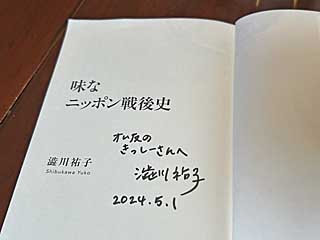 味な
ニッポン戦後史
澁川祐子
Shibukawa Yuko
きっしーさんへ
澁川祐子
2024.5.1